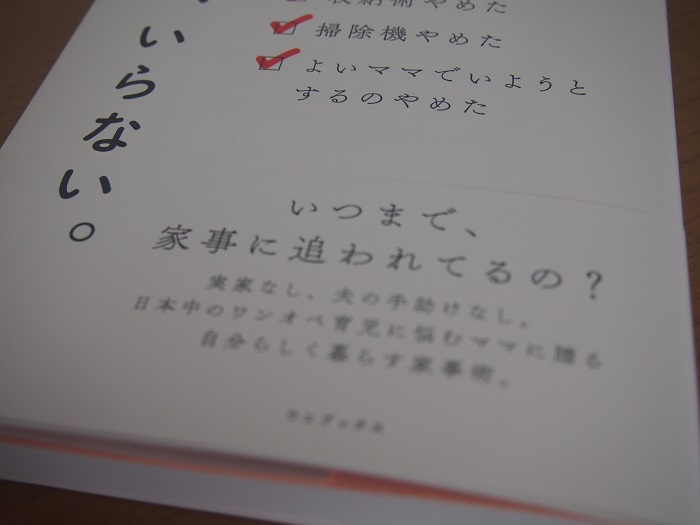 いらない。
収納術やめた
掃除機やめた
よいママでいようと
するのやめた
いつまで、
家事に追われてるの？
実家なし、夫の手助けなし。
日本中のワンオペ育児に悩むママに贈る
自分らしく暮らす家事術。